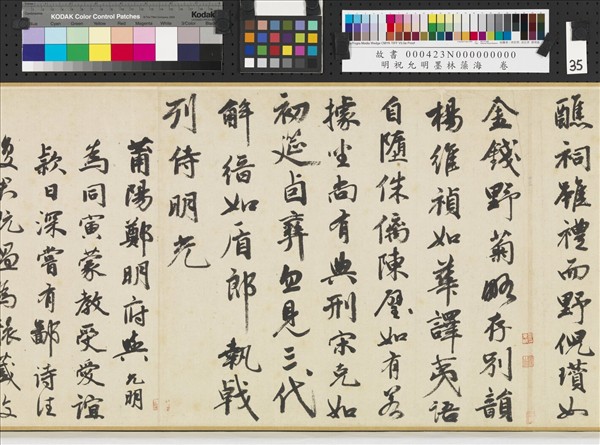 KODAK Color Control Patches
Kodak
故書 000423N000000000
明祝允明墨林藻海 卷
35
醮祠雖禮而野倪瓚如
金錢野菊略存別韻
楊維禎如華譯夷語
自隨侏陳璧如有若
據坐尚有典刑宋克如
初筵卣彝忽見三代
解縉如盾郎執戟
列侍明光
莆陽鄭明府與允明
為同寅蒙教受愛誼
款日深嘗有鄙詩往